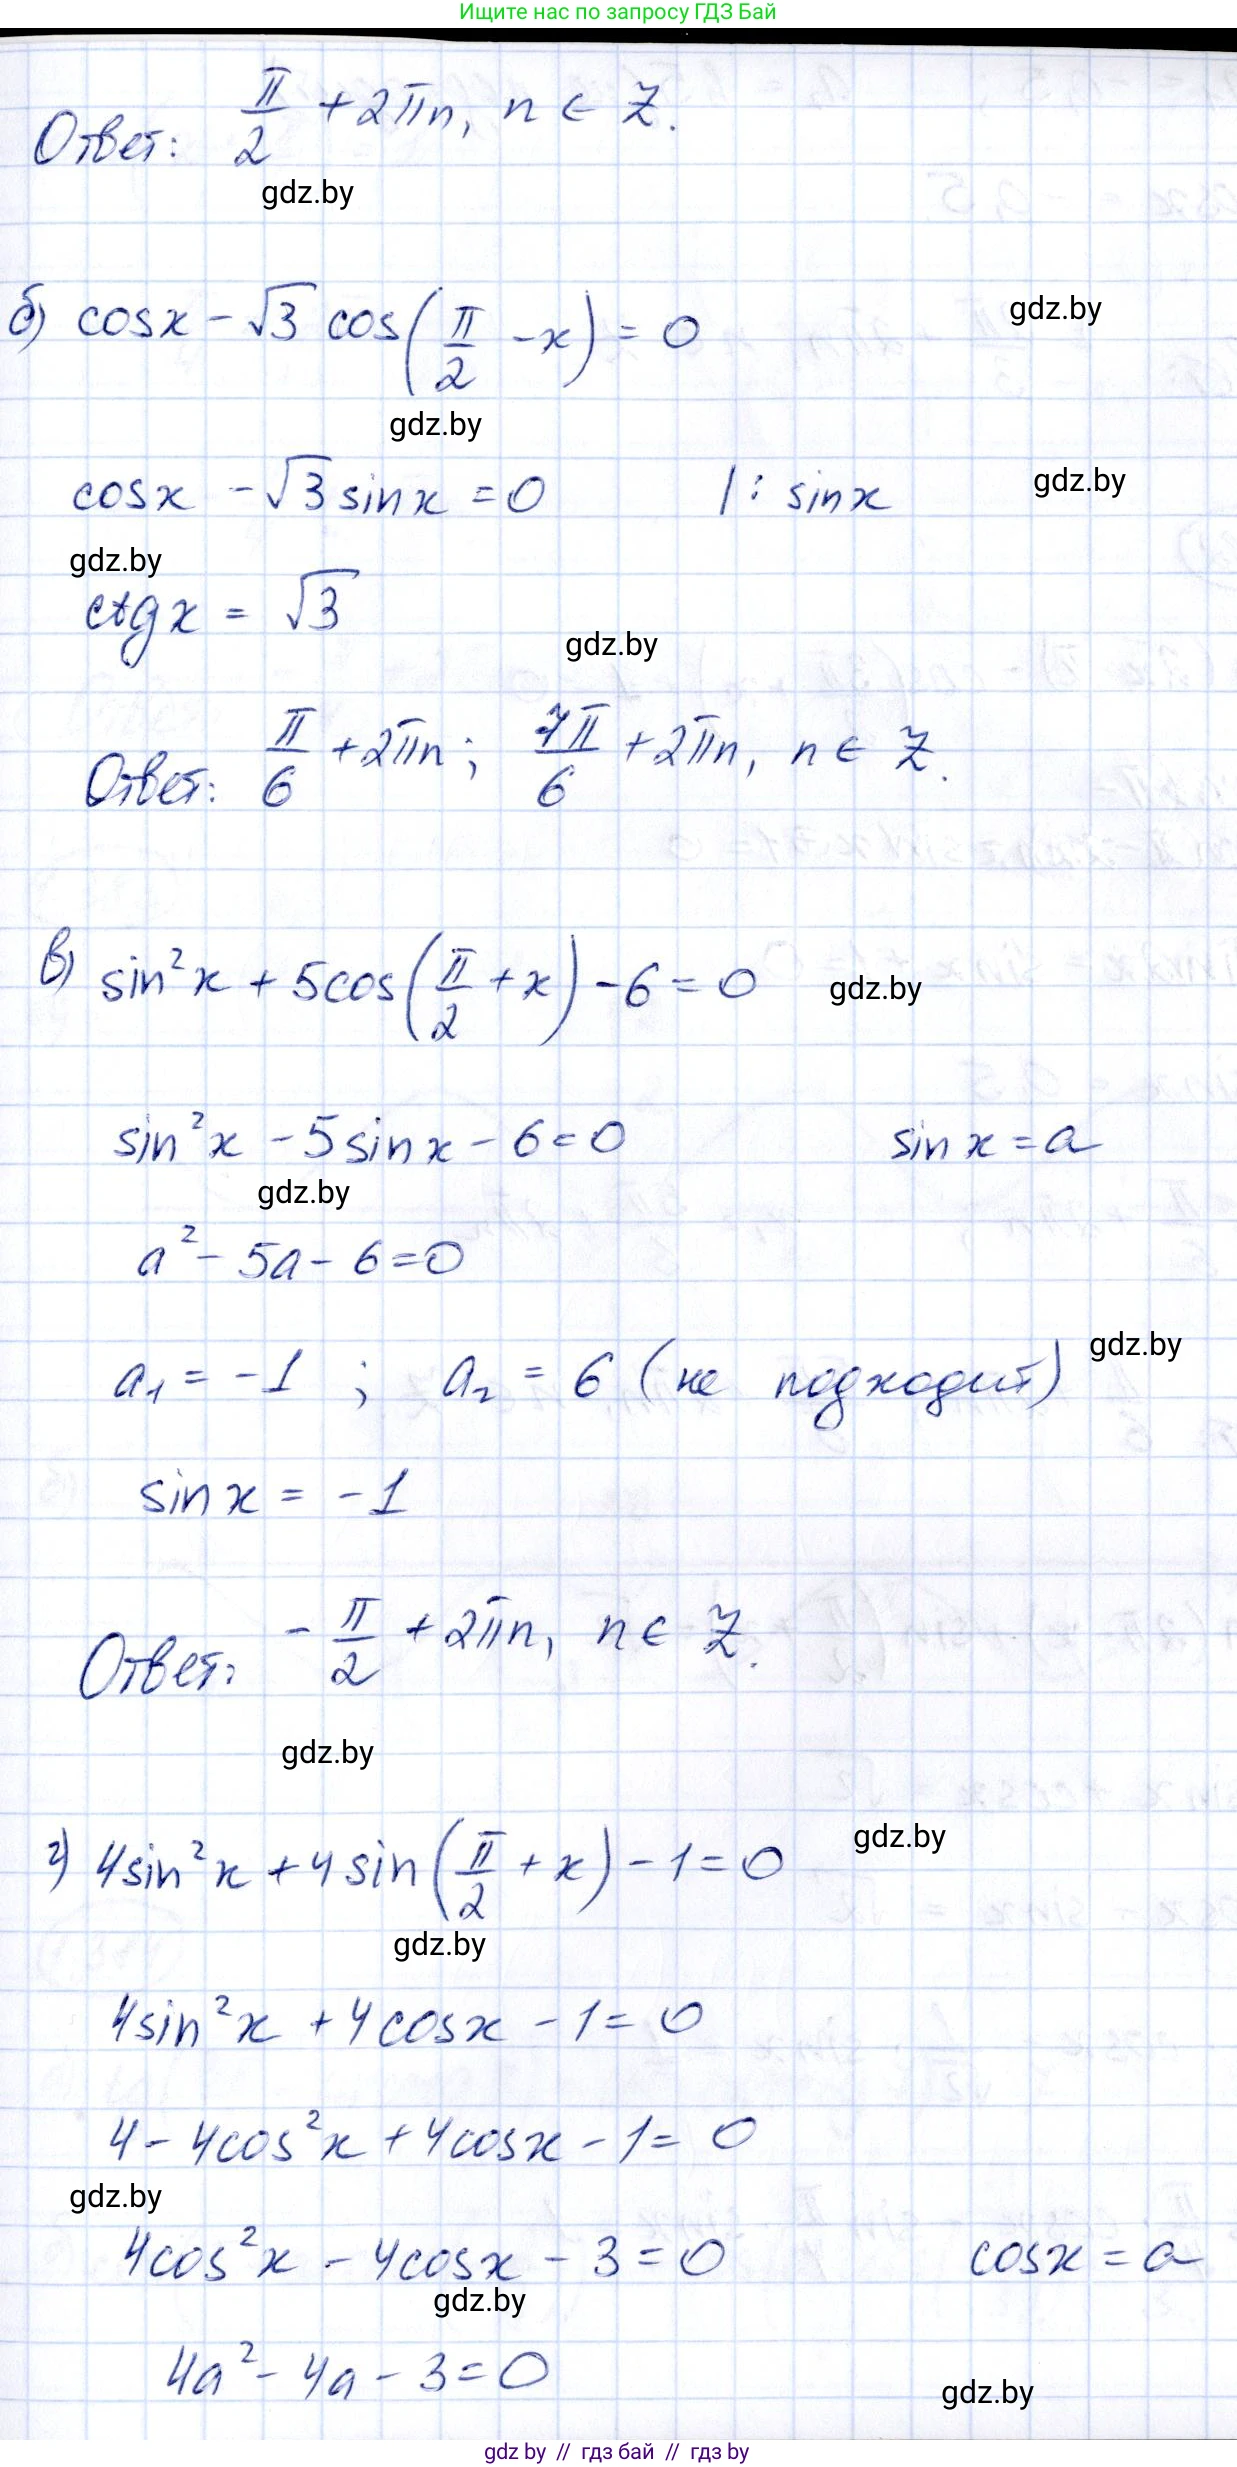 Ищите нас по запросу ГДЗ Бай
Ответ: π/2 + 2πn, n ∈ Z.
gdz.by
б) cosx - √3 cos(π/2 - x) = 0
gdz.by
gdz.by
cosx - √3 sinx = 0 |: sinx
gdz.by
gdz.by
ctgx = √3
gdz.by
Ответ: π/6 + 2πn; 7π/6 + 2πn, n ∈ Z.
в) sin²x + 5cos(π/2 + x) - 6 = 0
gdz.by
sin²x - 5sinx - 6 = 0 sinx = a
gdz.by
a² - 5a - 6 = 0
gdz.by
a₁ = -1 ; a₂ = 6 (не подходит)
sinx = -1
Ответ: -π/2 + 2πn, n ∈ Z.
gdz.by
gdz.by
г) 4sin²x + 4sin(π/2 + x) - 1 = 0
gdz.by
4sin²x + 4cosx - 1 = 0
4 - 4cos²x + 4cosx - 1 = 0
gdz.by
4cos²x - 4cosx - 3 = 0 cosx = a
gdz.by
4a² - 4a - 3 = 0
gdz.by
gdz by // гдз бай // гдз by